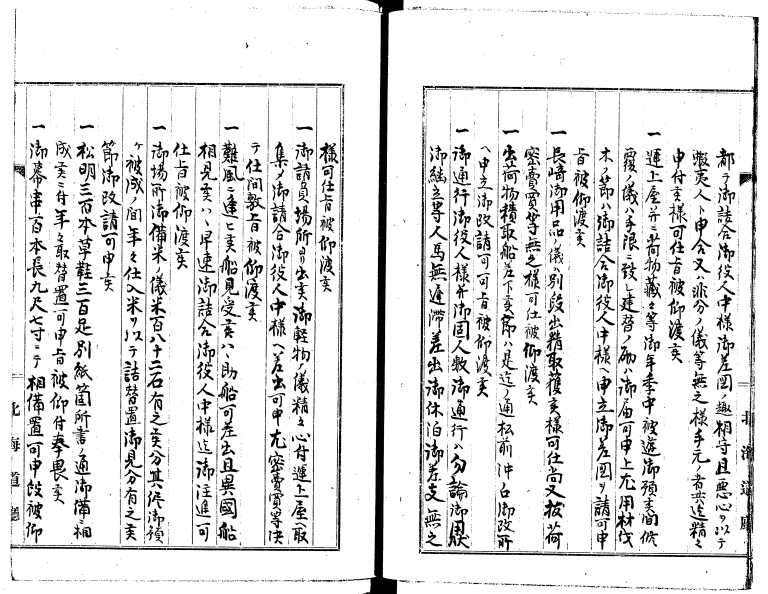 都テ御詰合御役人中様御差図ノ趣相守且悪心ヲ以テ
蝦夷人ト申合又ハ非分ノ儀等無之様手元ノ者共迄精々
申付候様可仕旨被仰渡候
一運上屋并ニ荷物蔵々等御年季中被遊御預候間修
覆ノ儀ハ手限ニ致し建替ノ砌ハ御届可申上尤用材伐
木ノ節ハ御詰合御役人中様ヘ申立御差図ヲ請可申
旨被仰渡候
一長崎御用品ノ儀ハ別段出精取獲候様可仕尚又抜荷
密売買等無之様可仕被仰渡候
一出荷物積取船左下候節ハ是迄ノ通松前沖ノ口御改所
ヘ申立御改請可申旨被仰渡候
一御通行御役人様并御固人数御通行ハ勿論御用状
御継立等人馬無遅滞差出御休泊御差支無之
北海道庁
様可仕旨被仰渡候
一御請負場所ヨリ出候御軽物ノ儀精々心付運上屋ヘ取
集メ御詰合御役人中様ヘ差出可申尤密売買等決
テ仕間敷旨被仰渡候
一難風ニ逢ヒ候船見受候ハヽ助船可差出且異国船
相見候ハヽ早速御詰合御役人中様迄御注進可
仕旨被仰渡候
一御場所御備米ノ儀米百八十二石有之候分其侭御預
ケ被成ノ間年々仕入米ヲ以テ詰替置御見分有之候
節御改請可申候
一松明三百本草鞋三百足別紙箇所書ノ通御備ニ相
成候ニ付年々取替置可申旨被仰付奉畏候
一御幕串百本長九尺七寸ニテ相備置可申段被仰
北海道庁